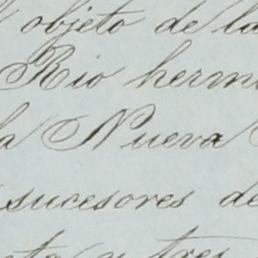 objeto de la
Rio herm
la Nueva
sucesores de
y tres